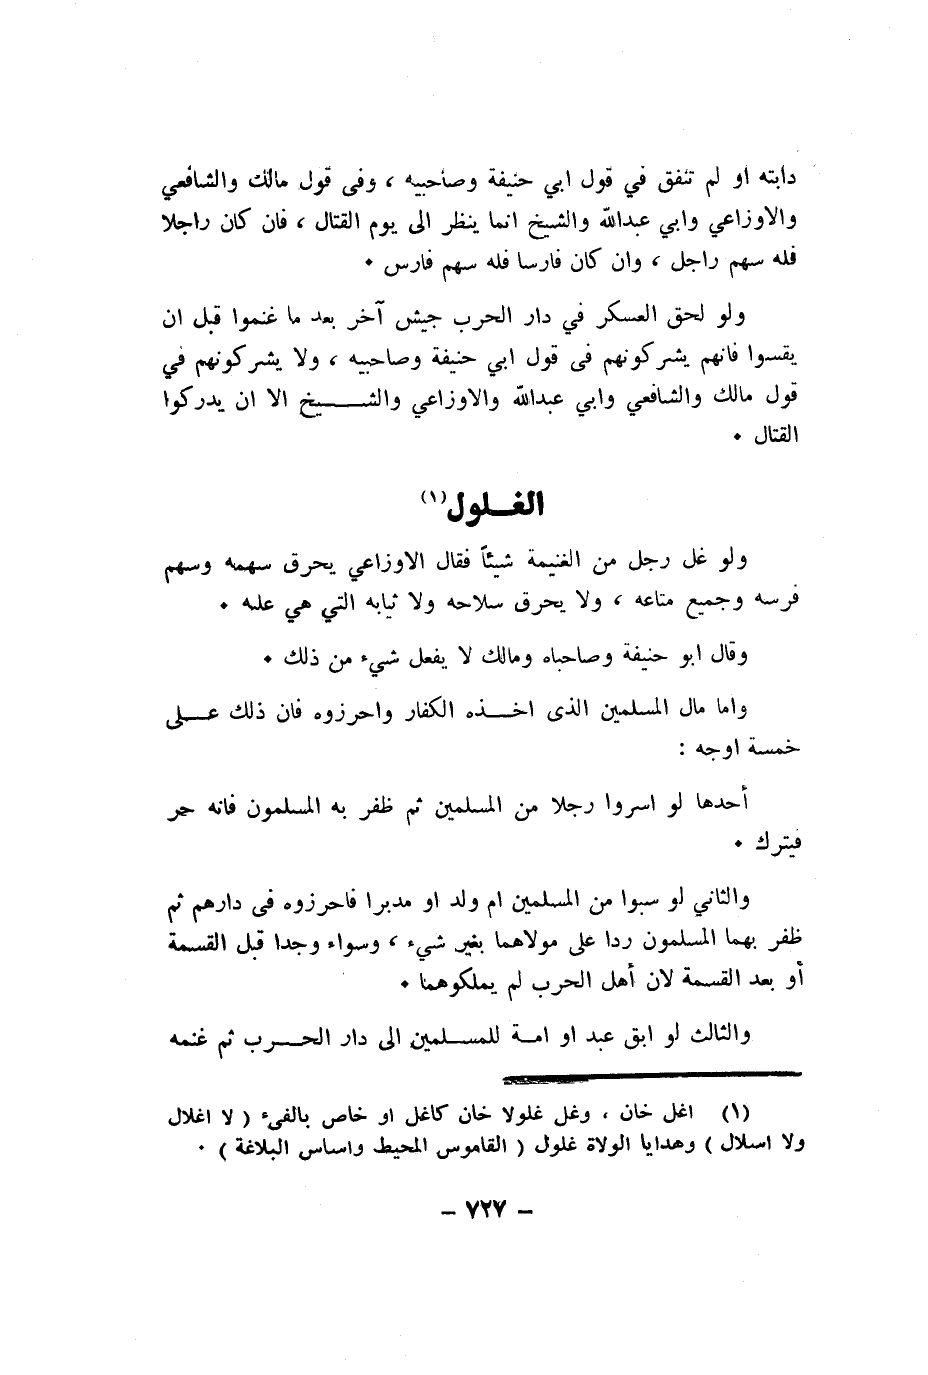 دابته او لم تنفق في قول ابي حنيفة وصاحبيه ، وفى قول مالك والشافعي
والاوزاعي وابي عبدالله والشيخ انما ينظر الى يوم القتال ، فان كان راجلا
فله سهم راجل ، وان كان فارسا فله سهم فارس •
ولو لحق العسكر في دار الحرب جيش آخر بعد ما غنموا قبل ان
يقسوا فانهم يشركونهم فى قول ابي حنيفة وصاحبيه ، ولا يشركونهم في
قول مالك والشافعي وابي عبدالله والاوزاعي والشـــــيخ الا ان يدركوا
القتال •
الغــلول(١)
ولو غل رجل من الغنيمة شيئاً فقال الاوزاعي يحرق سهمه وسهم
فرسه وجميع متاعه ، ولا يحرق سلاحه ولا ثيابه التي هي عليه •
وقال ابو حنيفة وصاحباه ومالك لا يفعل شيء من ذلك •
واما مال المسلمين الذى اخـــذه الكفار واحرزوه فان ذلك عـــلى
خمسة اوجه :
أحدها لو اسروا رجلا من المسلمين ثم ظفر به المسلمون فانه حر
فيترك •
والثاني لو سبوا من المسلمين ام ولد او مدبرا فاحرزوه فى دارهم ثم
ظفر بهما المسلمون ردا على مولاهما بغير شيء ، وسواء وجدا قبل القسمة
أو بعد القسمة لان أهل الحرب لم يملكوهما •
والثالث لو ابق عبد او امــة للمســلمين الى دار الحـــرب ثم غنمه
(١) اغل خان ، وغل غلولا خان كاغل او خاص بالفىء ( لا اغلال
ولا اسلال ) وهدايا الولاة غلول ( القاموس المحيط واساس البلاغة ) •
– ٧٢٧ –